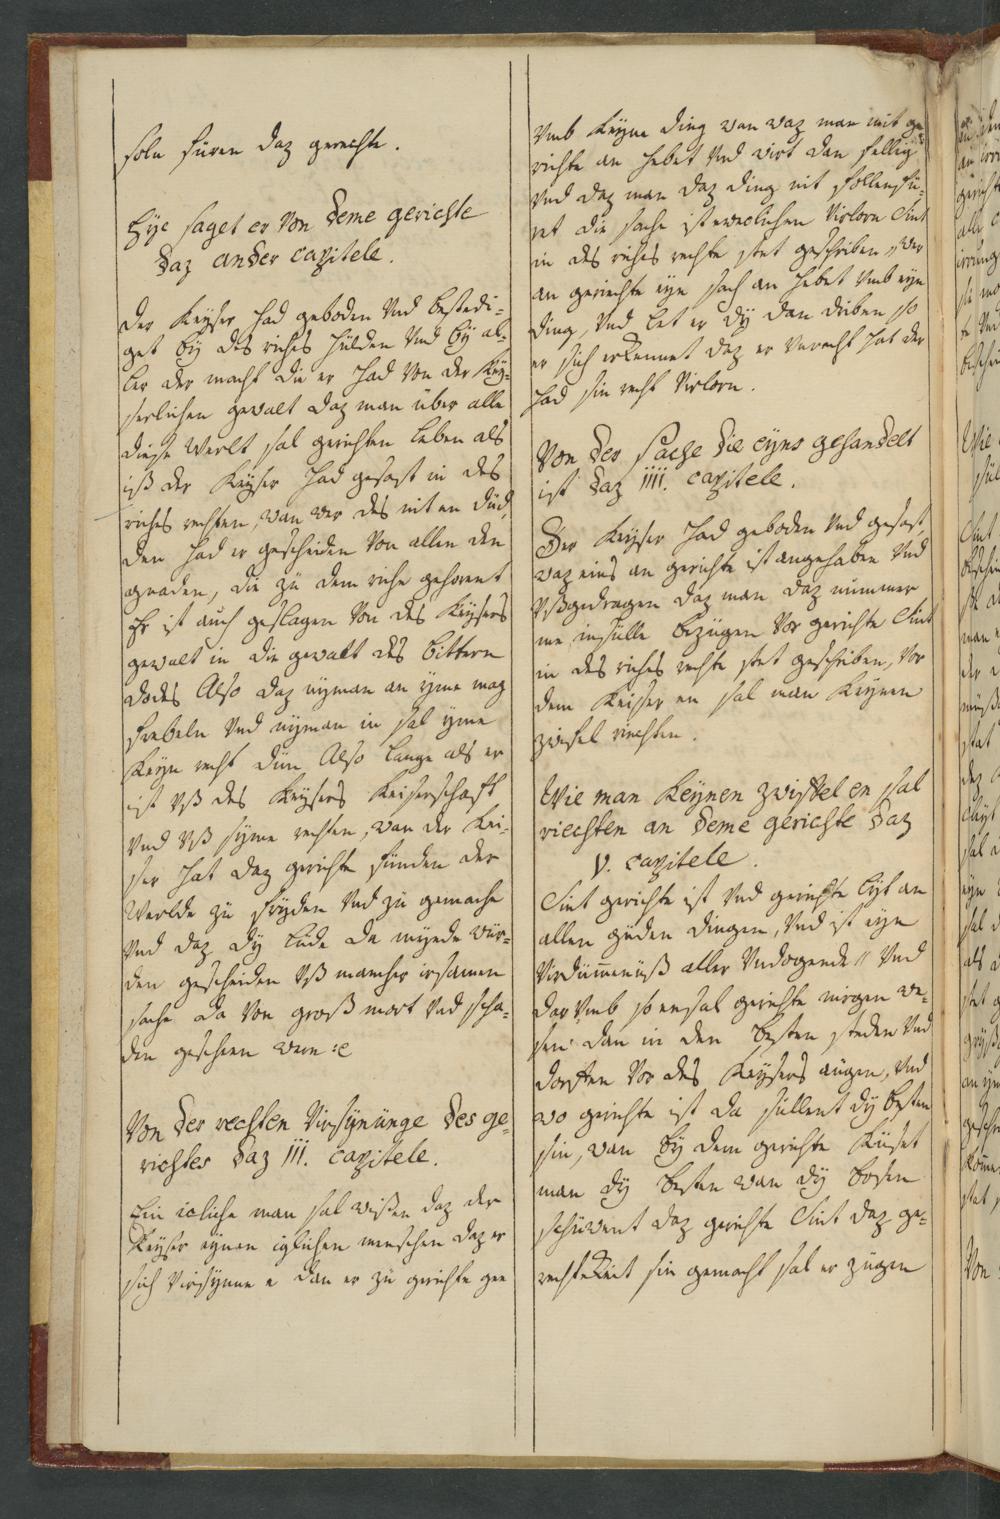 soln füren daz gerechte.
Hÿe saget er von deme gerichte
daz ander capitele.
Der Keÿser had geboden vnd bestedi-
get bÿ des riches hülden vnd bÿ al-
ler der macht die er had von der Keÿ-
serlichen gewalt daz man über alle
diese Werlt sal gerichten leben als
iß der Keÿser had gesast in des
riches rechten, wan wer des nit en düd,
den had er gescheiden von allen den
gnaden, die zü dem riche gehorent
Er ist auch geslagen von des Keÿsers
gewalt in die gewalt des bittern
dodes Also daz nÿman an ÿme mag
frebeln vnd nÿman in sal ÿme
Keÿn recht dün Also lange als er
ist vß des Keÿsers Keiserschafft
vnd vß sÿme rechten, wan der Kei-
ser hat daz gerichte fünden der
Werlde zü fryden vnd zü gemache
vnd daz dÿ lüde da mÿede wür-
den gescheiden vß mancher irsamen
sache da von groß mort vnd scha-
den gescheen wern:e
Von der rechten Virsÿnünge des ge-
richtes daz III. capitele.
Ein icliche man sal wißen daz der
Keÿser eÿnen iglichen menschen daz er
sich virsÿnne e dan er zü gerichte gee
vmb Keÿne ding wan waz man mit ge-
richte an hebet vnd wirt dan fellig
vnd daz man daz ding nit follenfü-
ret die sache ist ewelichen virlorn Sint
in des riches rechte stet geschriben, wer
an gerichte eÿn sach an hebet vmb eÿn
ding, vnd let er dÿ dan driben so
er sich erkennet daz er vnrecht hat der
had sin recht virlorn.
Von der sache die eÿns gehandelt
ist daz IIII. capitele.
Der Keÿser had geboden vnd gesast,
waz eins an gerichte ist angehaben vnd
vßgedragen daz man daz nummer
me insülle bezügen vor gerichte Sint
in des riches rechte stet geschriben, vor
dem Keiser en sal man Keÿnen
zwifel riechten.
Wie man Keÿnen zwiffel en sal
riechten an deme gerichte daz
V. capitele.
Sint gerichte ist vnd gerichte lÿt an
allen güden dingen, vnd ist eÿn
Virdümenüß aller Vndogende // vnd
dar vmb so ensal gerichte nirgen we-
sen dan in den besten steden vnd
dorffen vor des Keÿsers aügen, vnd
wo gerichte ist da süllent dÿ besten
sin, wan bÿ dem gerichte Küset
man dÿ besten wan dÿ bosen
schüwent daz gerichte Sint daz ge-
rechtekeit sin gemacht sal er zügen